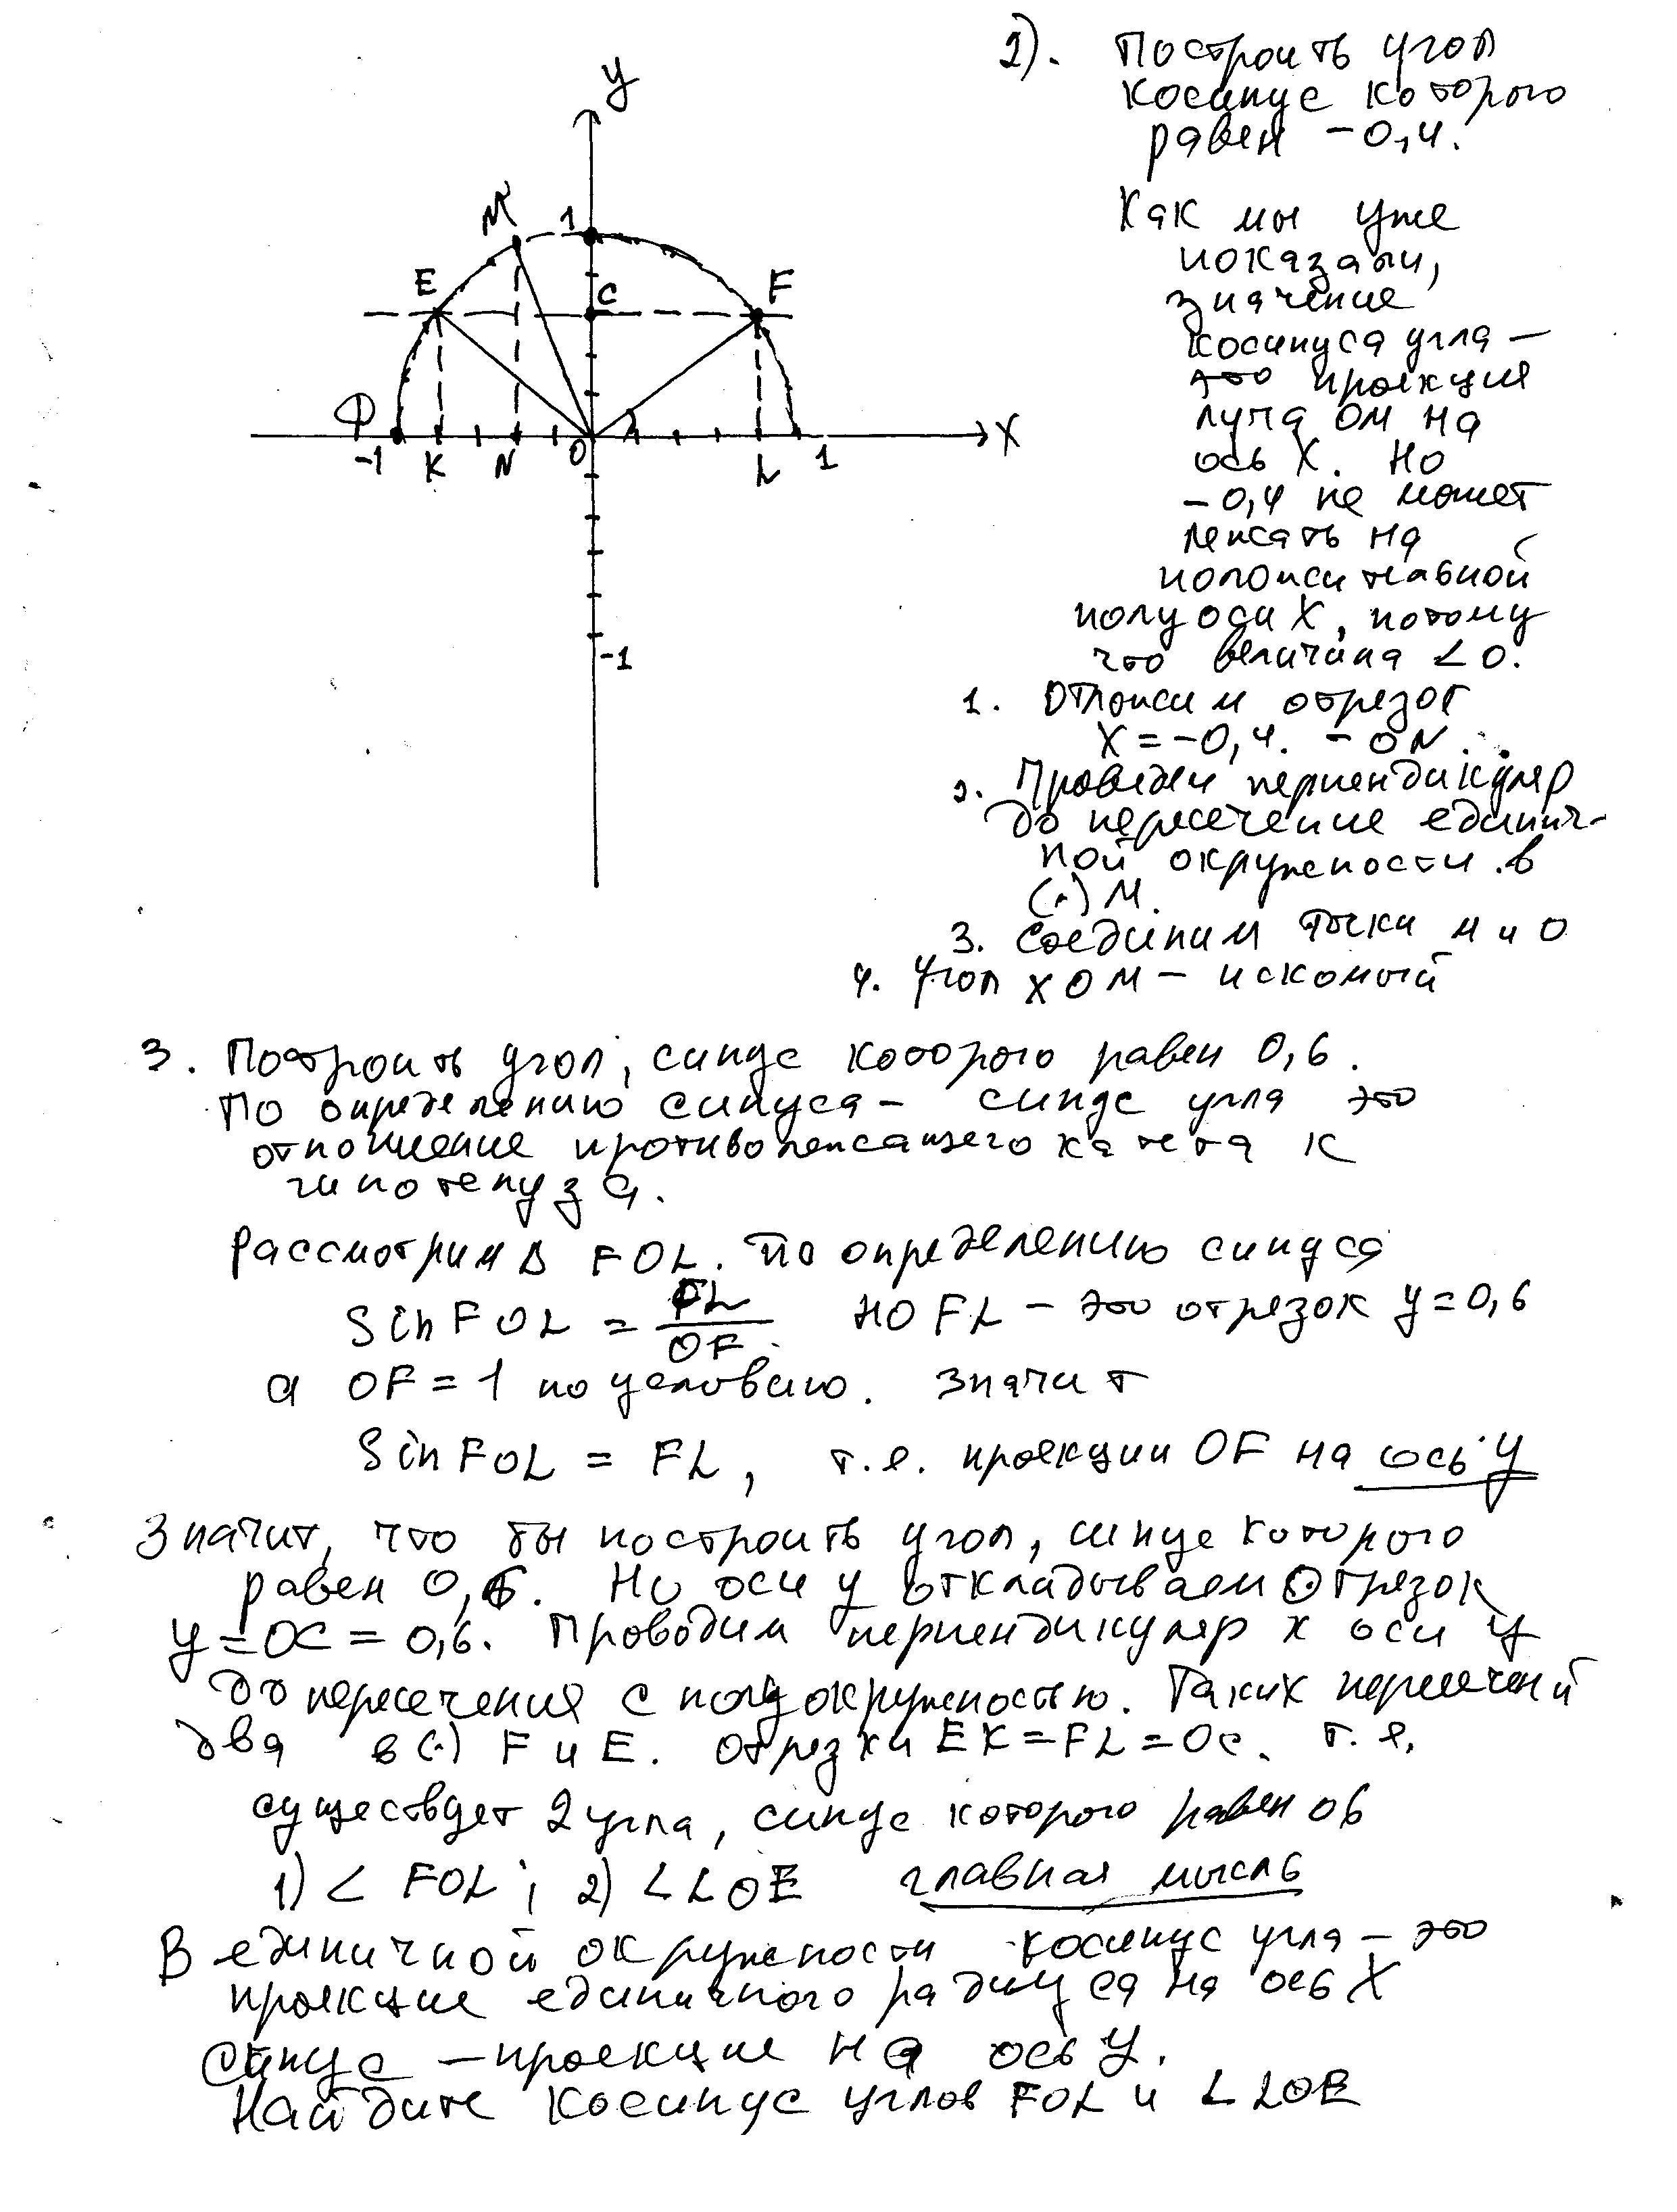 2). Построить угол
косинус которого
равен -0,4.
Как мы уже
показали,
значение
косинуса угла —
это проекция
луча ОМ на
ось X. Но
-0,4 не может
лежать на
положительной
полуоси X, потому
что величина < 0.
1. Отложим отрезок
X = -0,4. - ON.
2. Проведем перпендикуляр
до пересечение единич-
ной окружности в
(.) М.
3. Соединим точки М и О
4. Угол ХОМ — искомый
y
M
1
E
C
F
D
-1
K
N
O
L
1
X
-1
3. Построить угол, синус которого равен 0,6.
По определению синуса — синус угла это
отношение противолежащего катета к
гипотенузе.
Рассмотрим Δ FOL. По определению синуса
Sin FOL = FL/OF. НО FL — это отрезок y = 0,6
а OF = 1 по условию. Значит
Sin FOL = FL, т.е. проекции OF на ось y
Значит, что бы построить угол, синус которого
равен 0,6. На оси y откладываем отрезок
y = OC = 0,6. Проводим перпендикуляр к оси y
до пересечения с полуокружностью. Таких пересечений
два в (.) F и E. Отрезки EK = FL = OC. т.е.
существует 2 угла, синус которого равен 06
1) < FOL; 2) < LOE главная мысль
В единичной окружности косинус угла — это
проекция единичного радиуса на ось X
Синус — проекция на ось y.
Найдите косинус углов FOL и < LOE